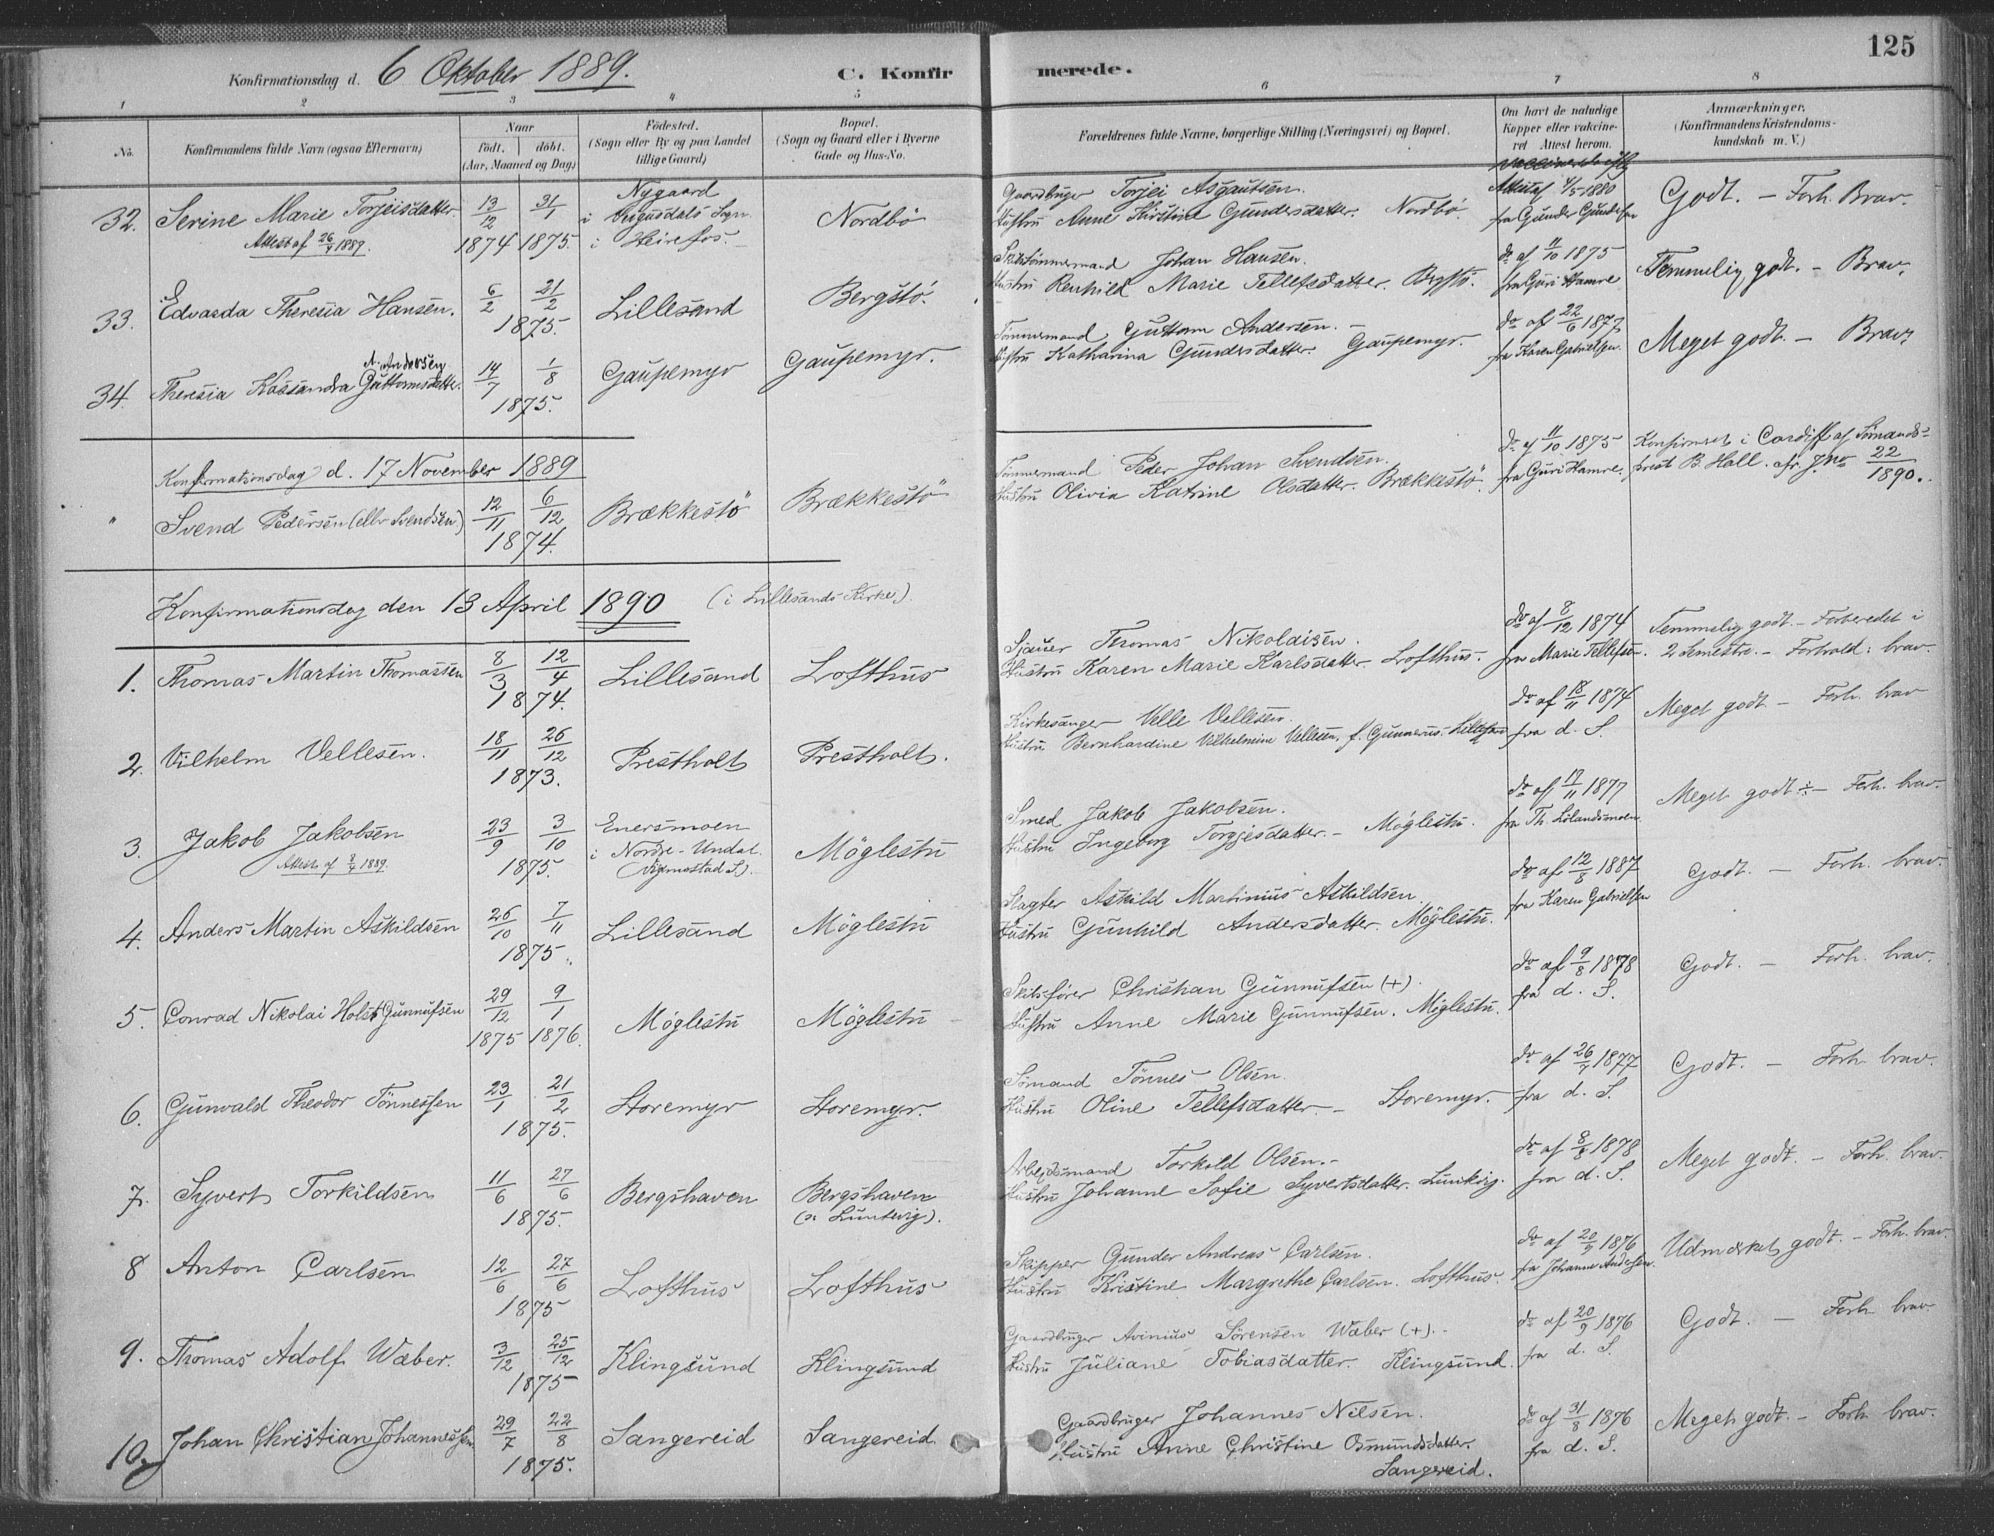 125
Konfirmationsdag d. 6 Oktober 1889. C. Konfirmerede.
1 2 3 4 5 6 7 8
No. Konfirmandens fulde Navn (ogsaa Efternavn) Naar født. døbt. (Aar, Maaned og Dag) Fødested. (Sogn eller By og paa Landet tillige Gaard) Bopæl. (Sogn og Gaard eller i Byerne Gade og Hus-No. Forældrenes fulde Navne, borgerlige Stilling (Næringsvei) og Bopæl. Om havt de naturlige Kopper eller vaccineret. Attest herom. Anmærkninger. (Konfirmandens Kristendomskundskab m. V.)
32. Serine Marie Torjeisdatter 13/12 1874 31/1 1875. Nygaard i Vegusdals Sogn i Heirefos. Nordbö Gaardbruger Torjei Asgautsen. Attest af 4/5 1880 Godt. – Forh. Brav.
Attest af 26/4 1889. Hustru Anne Kirstine Gundersdatter. Nordbö. fra Gunder Gundersen
33. Edvarda Theresia Hansen. 6/2 21/2 1875. Lillesand Bergstö. Skibstömmermand Johan Hansen. do af 11/10 1875 Temmelig godt. – Brav.
Hustru Renhild Marie Tellefsdatter. Bergstö. fra Guri Hamre
34. Theresia Kassandra Guttormsdatter. 14/7 1/8 1875. Gaupemyr Gaupemyr. Tömmermand Guttorm Andersen. – do af 22/6 1877 Meget godt. – Brav.
Andersen Hustru Katharina Gundersdatter. Gaupemyr. fra Karen Gabrielsen.
Konfirmationsdag d. 17 November 1889
" Svend Pedersen (ell. Svendsen) 12/11 6/12 1874. Brækkestö Brækkestö Tömmermand Peder Johan Svendsen. do af 11/10 1875 Konfirmeret i Cardiff af Sömands-
Hustru Olivia Katrine Olsdatter. Brækkestö. fra Guri Hamre. prest B. Hall. cfr. Jno 22/1890.
Konfirmationsdag den 13 April 1890 (i Lillesands Kirke.)
1. Thomas Martin Thomassen 8/3 12/4 1874. Lillesand Lofthus Sjauer Thomas Nikolaisen. do af 8/12 1874 Temmelig godt. – Forberedet i
Hustru Karen Marie Karlsdatter. Lofthus. fra Marie Tellefsen. 2 Semestre. – Forhold: brav.
2. Vilhelm Vellesen. 18/11 26/12 1873. Prestholt Prestholt. Kirkesanger Velle Vellesen. do af 18/11 1874 Meget godt – Forh. brav
Hustru Bernhardine Vilhelmine Vellesen, f. Gunnerus. Lillesand fra d. S.
3. Jakob Jakobsen 23/9 3/10 1875. Enersmoen i Nordre-Undal. (Vigmostad S.) Möglestu Smed Jakob Jakobsen. do af 17/11 1877 Meget godt ÷ – Forh. brav.
Attest af 8/4 1889. Hustru Ingeborg Torgjesdatter. – Möglestu. fra Th. Lölandsmoen
4. Anders Martin Askildsen 26/10 7/11 1875. Lillesand Möglestu Slagter Askild Martinius Askildsen do af 12/8 1887 Godt. – Forh. brav.
Hustru Gunhild Andersdatter. Möglestu. fra Karen Gabrielsen
5. Conrad Nikolai Holst Gunnufsen 29/12 1875 9/1 1876. Möglestu Möglestu Skibsförer Christian Gunnufsen (+). do af 9/8 1878 Godt. – Forh. brav.
Hustru Anne Marie Gunnufsen. Möglestu. fra d. S.
6. Gunvald Theodor Tönnessen 23/1 21/2 1875. Storemyr Storemyr. Sömand Tönnes Olsen. do af 26/7 1877 Godt. – Forh. brav.
Hustru Oline Tellefsdatter. – Storemyr. fra d. S.
7. Syvert Torkildsen 11/6 27/6 1875. Bergshaven Bergshaven (v. Luntevig). Arbeidsmand Torkild Olsen. – do af 8/8 1878 Meget godt. – Forh. brav.
Hustru Johanne Sofie Syvertsdatter. fra d. S.
8 Anton Carlsen 12/6 27/6 1875 Lofthus Lofthus Skipper Gunder Andreas Carlsen. do af 20/9 1876 Udmerket godt. – Forh. brav.
Hustru Kristine Margrethe Carlsen. Lofthus. fra Johanne Andersen.
9. Thomas Adolf Wæber. 3/12 25/12 1875 Klingsund Klingsund Gaardbruger Avinius Sörensen Wæber (+). – do af 20/9 1876 Godt. – Forh. brav
Hustru Juliane Tobiasdatter. Klingsund. fra d. S.
10. Johan Christian Johannessen 29/7 22/8 1875. Sangereid Sangereid. Gaardbruger Johannes Nilsen. do af 31/8 1876 Meget godt. – Forh. brav.
Hustru Anne Christine Osmundsdatter. Sangereid. fra d. S.